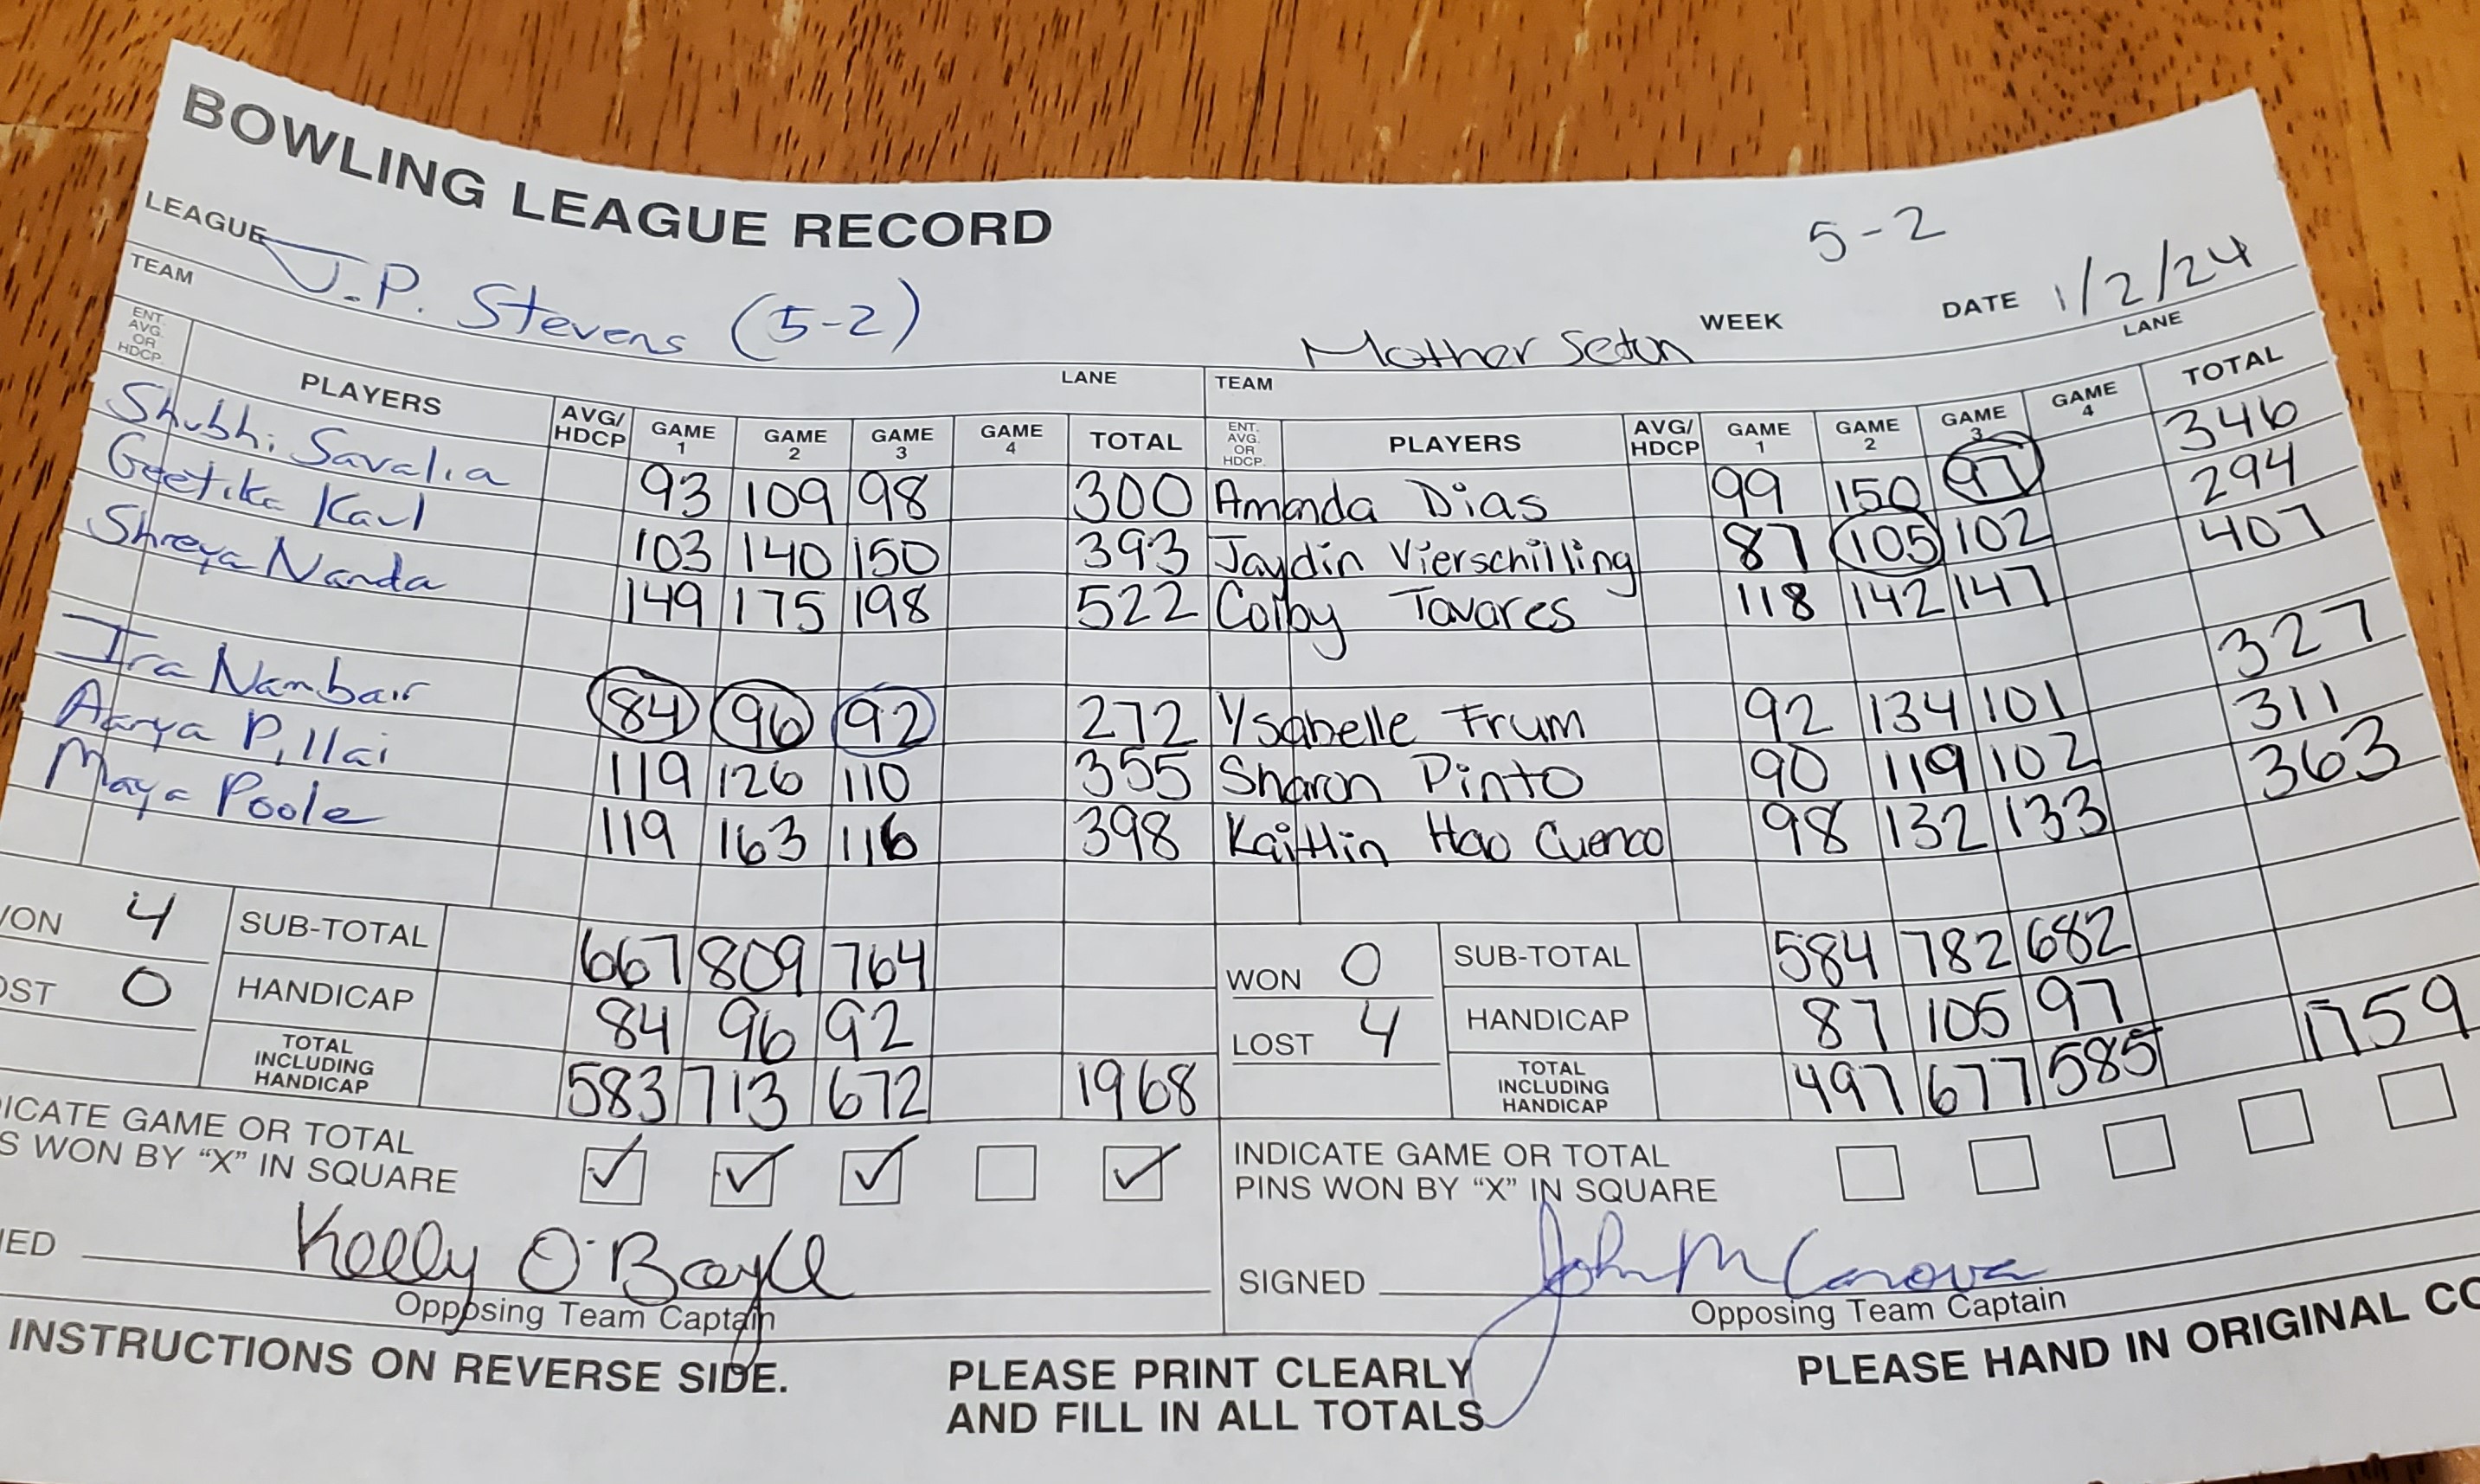 BOWLING LEAGUE RECORD
5-2
LEAGUE WEEK DATE 1/2/24
TEAM J.P. Stevens (5-2) LANE
TEAM Mother Seton LANE
ENT. AVG. OR HDCP. PLAYERS AVG/ HDCP GAME 1 GAME 2 GAME 3 GAME 4 TOTAL
Shubhi Savalia 93 109 98 300
Geetika Kaul 103 140 150 393
Shreya Nanda 149 175 198 522
Ira Nambair 84 96 92 272
Aarya Pillai 119 126 110 355
Maya Poole 119 163 116 398
WON 4
LOST 0
SUB-TOTAL 667 809 764
HANDICAP 84 96 92
TOTAL INCLUDING HANDICAP 583 713 672 1968
ICATE GAME OR TOTAL
S WON BY “X” IN SQUARE
ED Kelly O'Boyle
Opposing Team Captain
ENT. AVG. OR HDCP. PLAYERS AVG/ HDCP GAME 1 GAME 2 GAME 3 GAME 4 TOTAL
Amanda Dias 99 150 97 346
Jaydin Vierschilling 87 105 102 294
Colby Tavares 118 142 147 407
Ysabelle Frum 92 134 101 327
Sharon Pinto 90 119 102 311
Kaitlin Hao Cuenco 98 132 133 363
WON 0
LOST 4
SUB-TOTAL 584 782 682
HANDICAP 87 105 97
TOTAL INCLUDING HANDICAP 497 677 585 1759
INDICATE GAME OR TOTAL
PINS WON BY “X” IN SQUARE
SIGNED John M Canova
Opposing Team Captain
INSTRUCTIONS ON REVERSE SIDE.
PLEASE PRINT CLEARLY
AND FILL IN ALL TOTALS
PLEASE HAND IN ORIGINAL CO